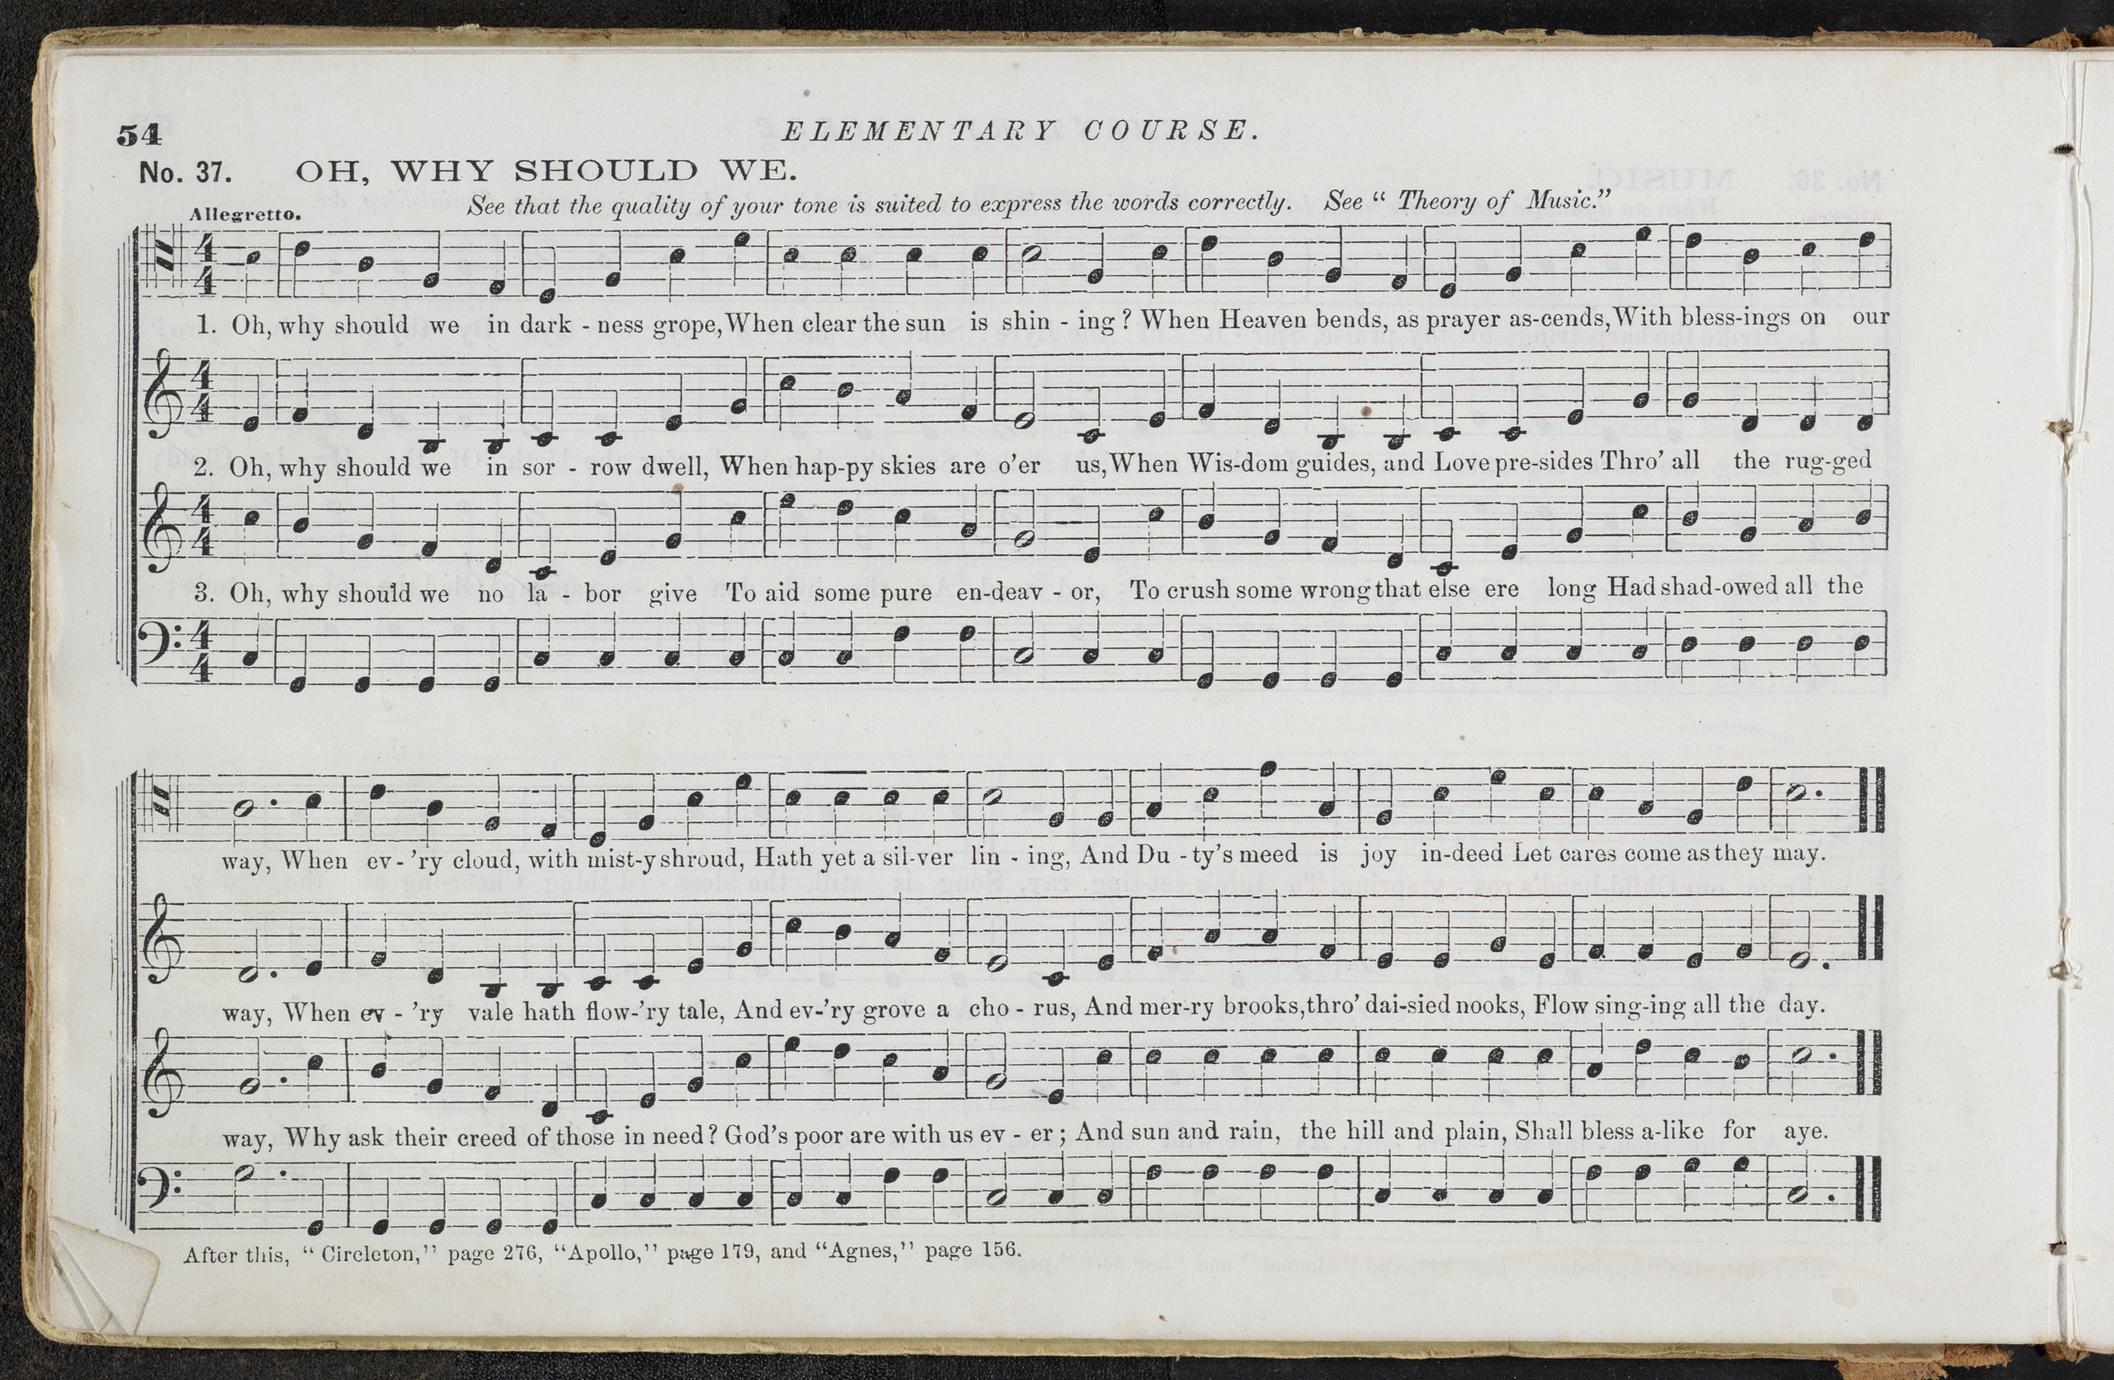 54
ELEMENTARY COURSE.
No. 37. OH, WHY SHOULD WE.
Allegretto.
See that the quality of your tone is suited to express the words correctly. See “ Theory of Music.”
1. Oh, why should we in dark - ness grope, When clear the sun is shin - ing ? When Heaven bends, as prayer as-cends, With bless-ings on our
2. Oh, why should we in sor - row dwell, When hap-py skies are o’er us, When Wis-dom guides, and Love pre-sides Thro’ all the rug-ged
3. Oh, why should we no la - bor give To aid some pure en-deav - or, To crush some wrong that else ere long Had shad-owed all the
way, When ev-’ry cloud, with mist-y shroud, Hath yet a sil-ver lin - ing, And Du - ty’s meed is joy in-deed Let cares come as they may.
way, When ev - ’ry vale hath flow-’ry tale, And ev-’ry grove a cho - rus, And mer-ry brooks, thro’ dai-sied nooks, Flow sing-ing all the day.
way, Why ask their creed of those in need? God’s poor are with us ev - er ; And sun and rain, the hill and plain, Shall bless a-like for aye.
After this, “ Circleton,” page 276, “Apollo,” page 179, and “Agnes,” page 156.